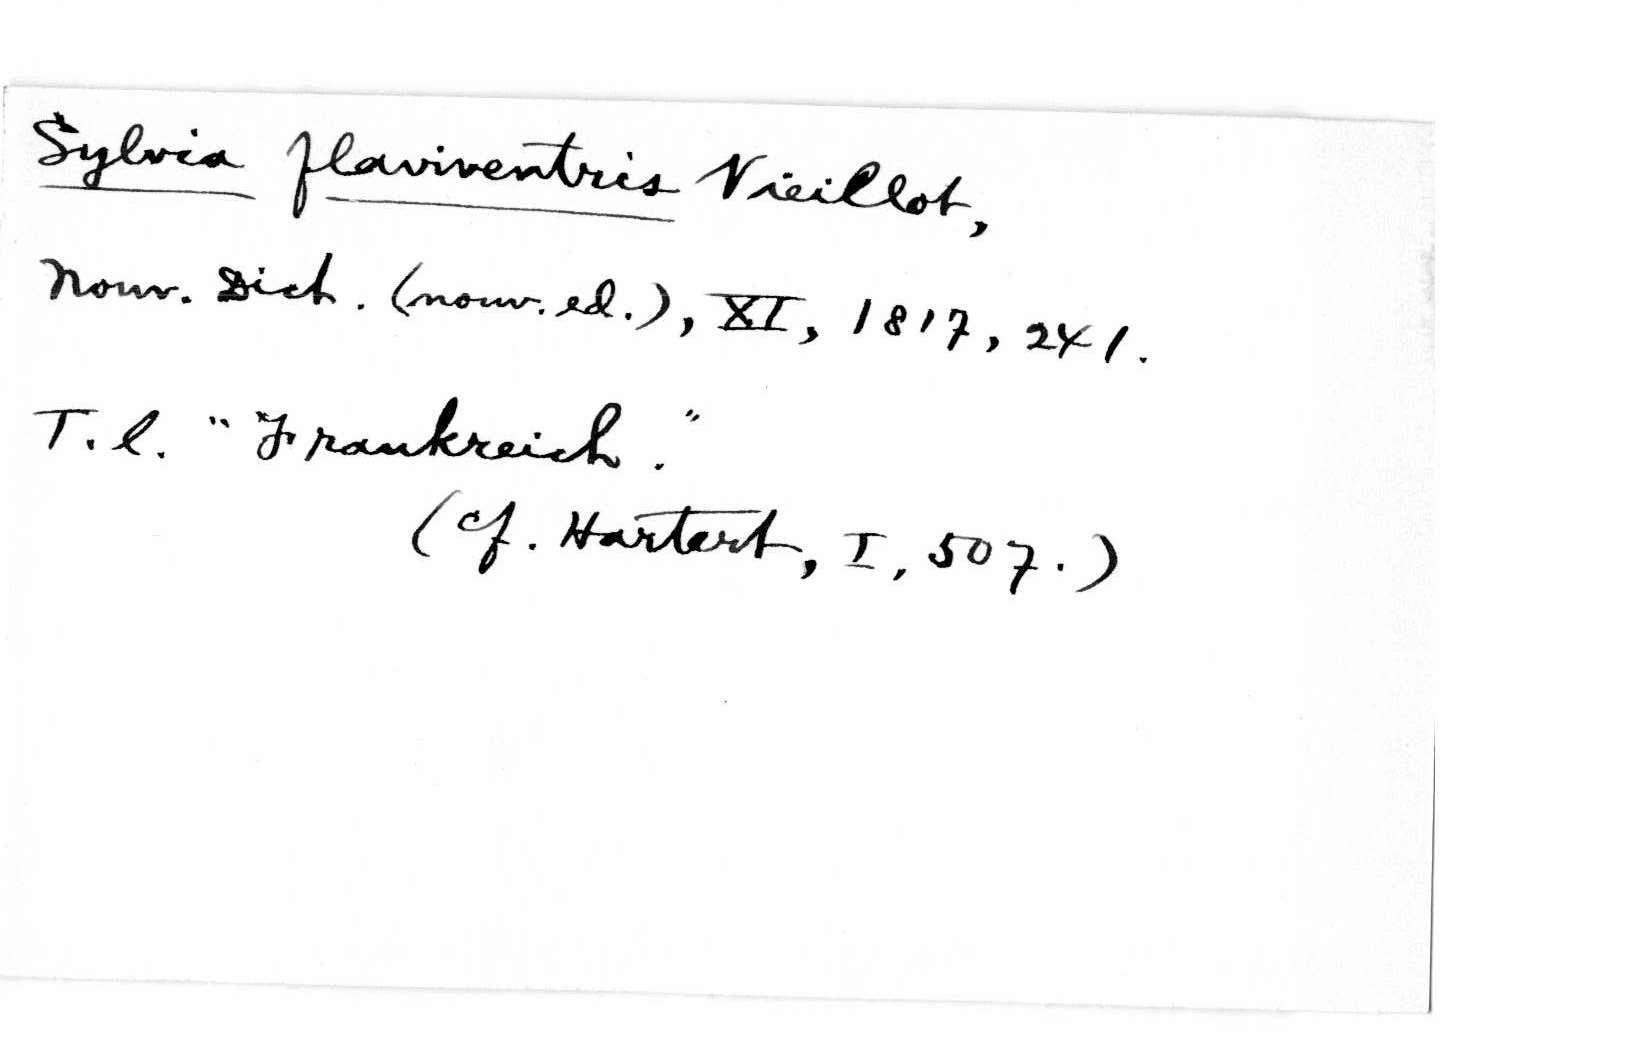 Sylvia flaviventris Vieillot,
Nouv. Dict. (nouv. ed.), XI, 1817, 241.
T. l. "Frankreich."
(cf. Hartert, I, 507.)